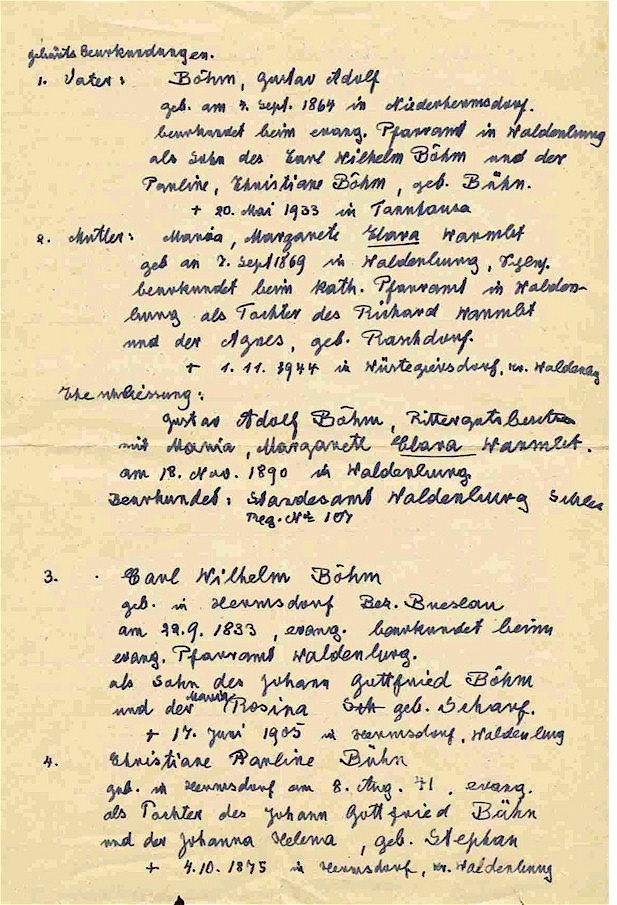 geburts beurkundungen.
1. Vater: Böhm, Gustav Adolf
geb. am 7. Sept. 1864 in Niederhermsdorf.
beurkundet beim evang. Pfarramt in Waldenburg
als Sohn des Carl Wilhelm Böhm und der
Pauline, Christiane Böhm, geb. Bühn.
+ 20. Mai 1933 in Tannhausen
2. Mutter: Maria, Margarete Clara Warmbt
geb an 7. Sept 1869 in Waldenburg, Schles.
beurkundet beim kath. Pfarramt in Walden-
burg als Tochter des Richard Warmbt
und der Agnes, geb. Raschdorf.
+ 1. 11. 1944 in Wüstegiersdorf, kr. Waldenbg
Ehe schliessung:
Gustav Adolf Böhm, Rittergutsbesitzer
mit Maria, Margareth Clara Warmbt.
am 18. Nov. 1890 in Waldenburg
Beurkundet: Standesamt Waldenburg Schles
Reg. Nr 107
3. Carl Wilhelm Böhm
geb. in Hermsdorf Bez. Breslau
am 22.9. 1833, evang. beurkundet beim
evang. Pfarramt Waldenburg.
als Sohn des Johann Gottfried Böhm
und der Maria Rosina geb. Scharf.
+ 17. Juni 1905 in Hermsdorf, Waldenburg
4. Christiane Pauline Bühn
geb. in Hermsdorf am 8. Aug. 41. evang.
als Tochter des Johann Gottfried Bühn
und der Johanna Helena, geb. Stephan
+ 4.10. 1875 in Hermsdorf, kr. Waldenburg